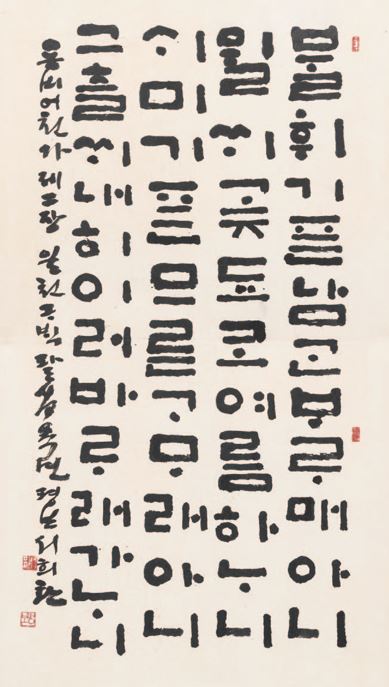 불휘기픈남ᄀᆞᆫᄇᆞᄅᆞ매아니
뮐ᄊᆡ곶됴코여름하ᄂᆞ니
ᄉᆡ미기픈므른ᄀᆞᄆᆞ래아니
그츨ᄊᆡ내히이러바ᄅᆞ래가ᄂᆞ니
용비어천가 제 장 일천구백팔십육년 평보 서희환